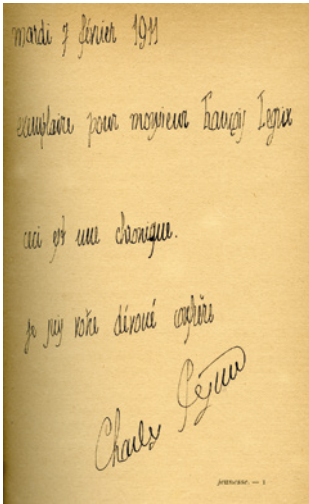 mardi 7 février 1911
exemplaire pour monsieur François Legrix
ceci est une chronique.
je suis votre dévoué confrère
Charles Péguy
jeunesse. — 1